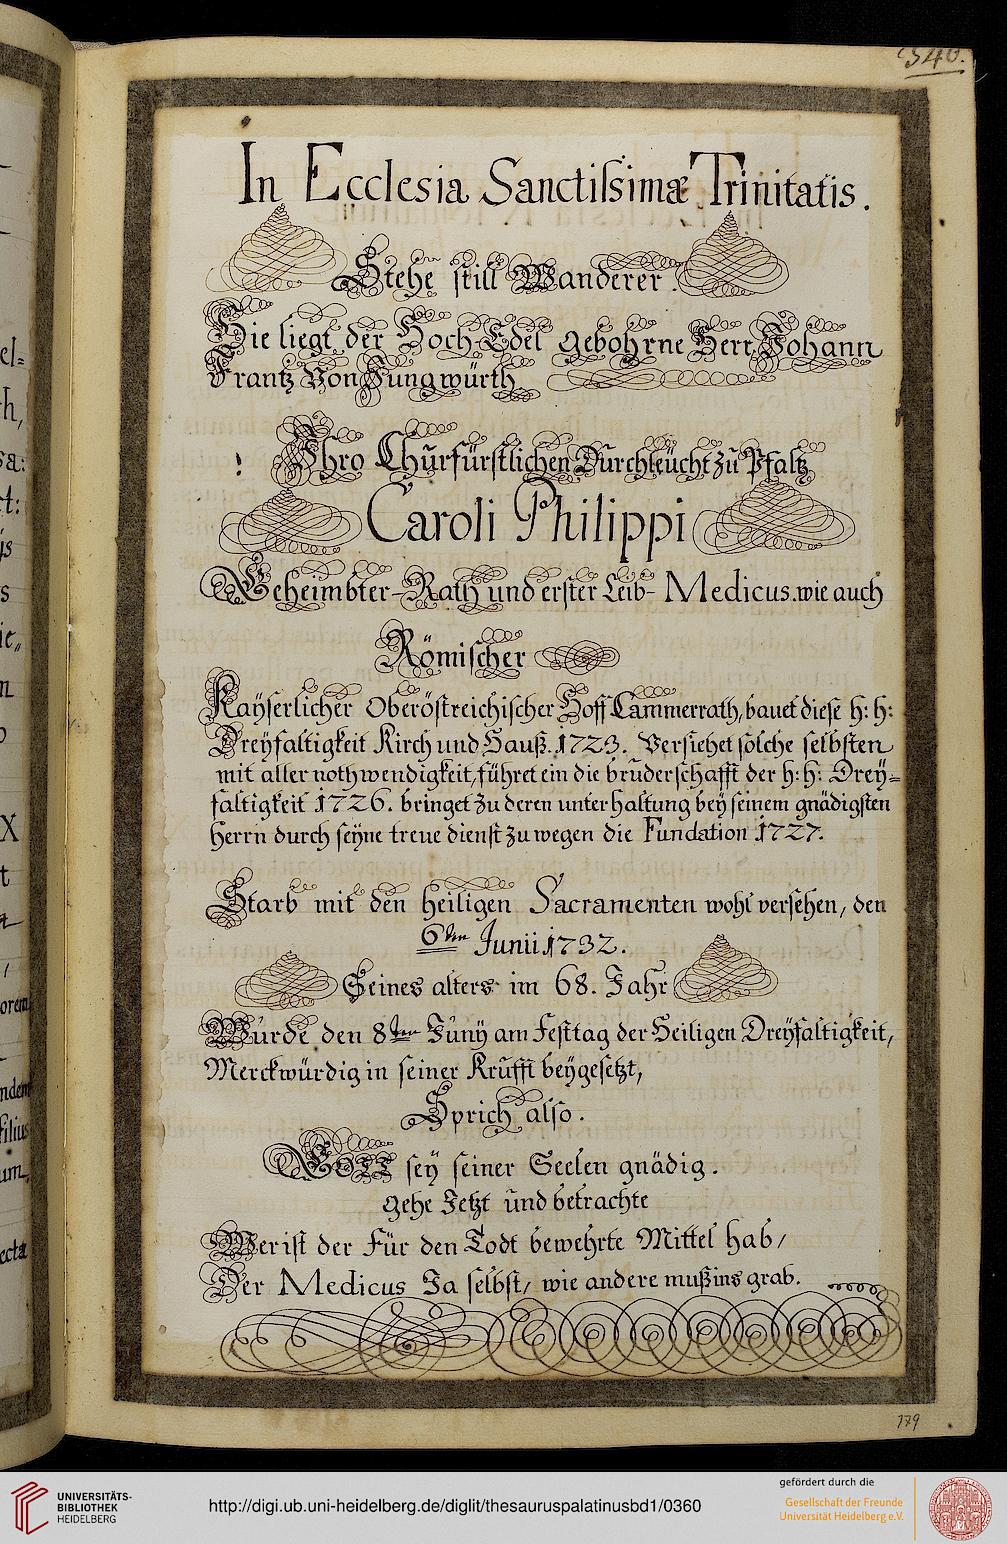 340.
In Ecclesia Sanctissimæ Trinitatis.
Stehe still Wanderer.
Hie liegt der Hoch-Edel gebohrne Herr Johann
Frantz Von Jungwürth
Ihro Chürfürstlichen Dürchleücht zü Pfaltz
Caroli Philippi
Geheimbter-Rath und erster Leib-Medicus. wie auch
Römischer
Kayserlicher Oberöstreichischer Hoff Cammerrath, bauet diese h: h:
Dreyfaltigkeit Kirch und Hauß. 1723. Versiehet solche selbsten
mit aller nothwendigkeit, führet ein die brüderschafft der h: h: Drey=
faltigkeit 1726. bringet zu deren unterhaltung bey seinem gnädigsten
herrn durch seyne treue dienst zu wegen die Fundation 1727.
Starb mit den heiligen Sacramenten wohl versehen, den
6ten Junii 1732.
Seines alters im 68. Jahr
Würde den 8ten Jüny am Festtag der Heiligen Dreyfaltigkeit,
Merckwürdig in seiner Krüfft beygesetzt,
Sprich also.
GOTT sey seiner Seelen gnädig.
gehe Jetzt ünd betrachte
Wer ist der Für den Todt bewehrte Mittel hab/
Der Medicus Ja selbst/ wie andere muß ins grab.
179
UNIVERSITÄTS-
BIBLIOTHEK
HEIDELBERG
http://digi.ub.uni-heidelberg.de/diglit/thesauruspalatinusbd1/0360
gefördert durch die
Gesellschaft der Freunde
Universität Heidelberg e.V.